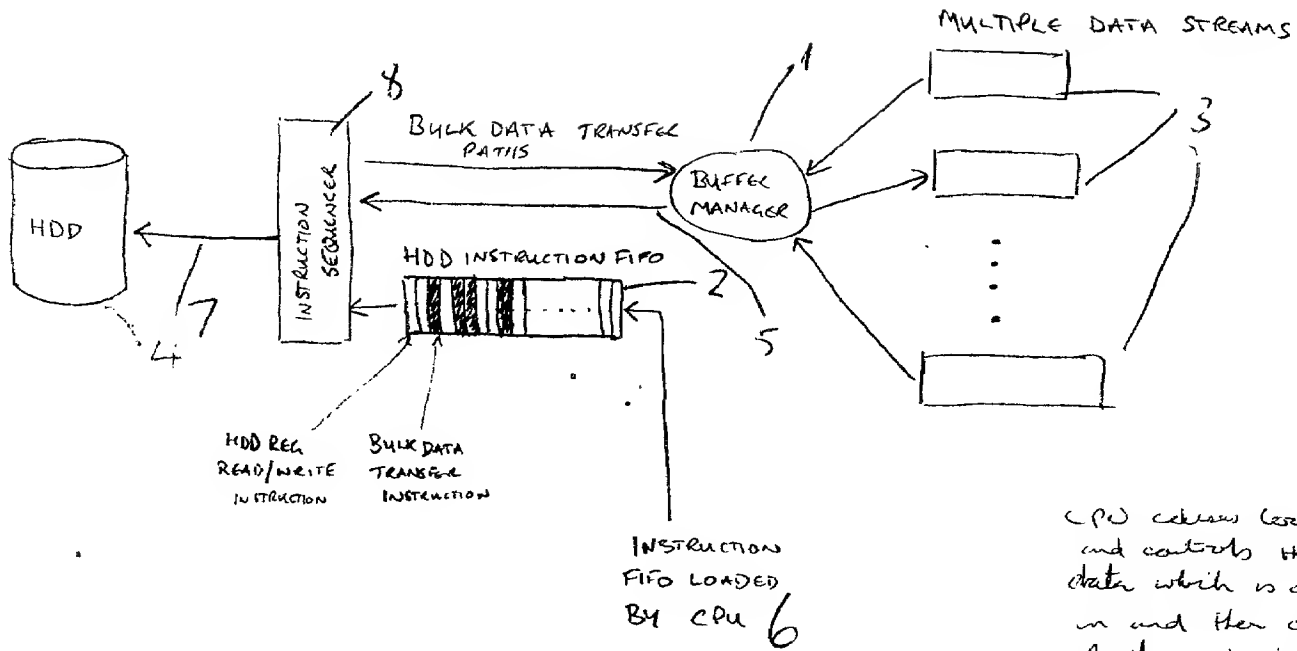 MULTIPLE DATA STREAMS
1
8
3
BULK DATA TRANSFER
PATHS
BUFFER
MANAGER
HDD
INSTRUCTION
SEQUENCER
HDD INSTRUCTION FIFO
2
5
7
4
HDD REG
READ/WRITE
INSTRUCTION
BULK DATA
TRANSFER
INSTRUCTION
INSTRUCTION
FIFO LOADED
BY CPU 6
CPU
and controls
data which is
in and then